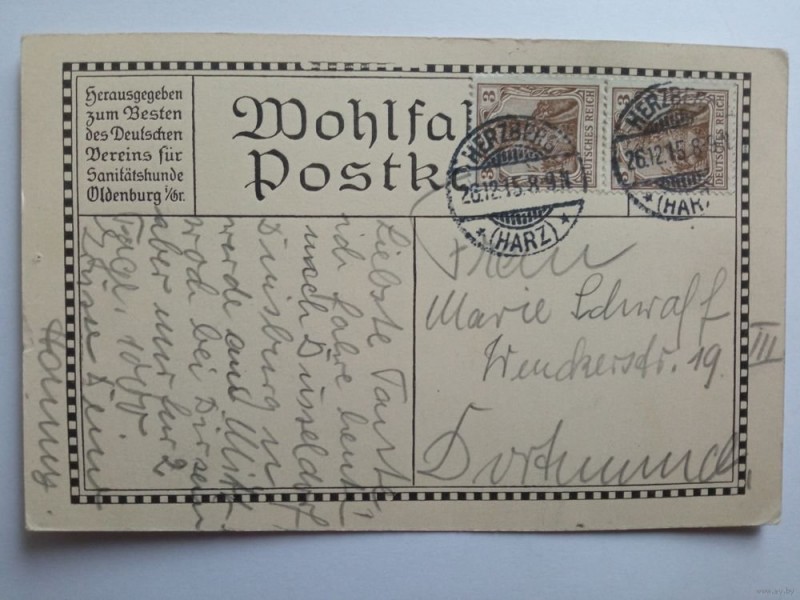 Herausgegeben
zum Besten
des Deutschen
Vereins für
Sanitätskunde
Oldenburg i/Gr.
Wohlfa
Postk
3
3
DEUTSCHES REICH
3
DEUTSCHES REICH
HERZBERG
26.12.15.8-9N
* (HARZ) *
HERZBERG
26.12.15.8-9N
* (HARZ)
Liebste Tante,
ich fahre heute
nach Düsseldorf
Duisburg u
werde am Mitt-
woch bei Dir sein
aber nur für 2
Tage.
Deine
Hanny.
Frau
Marie Schwaff
Wenckerstr. 19. III
Dortmund